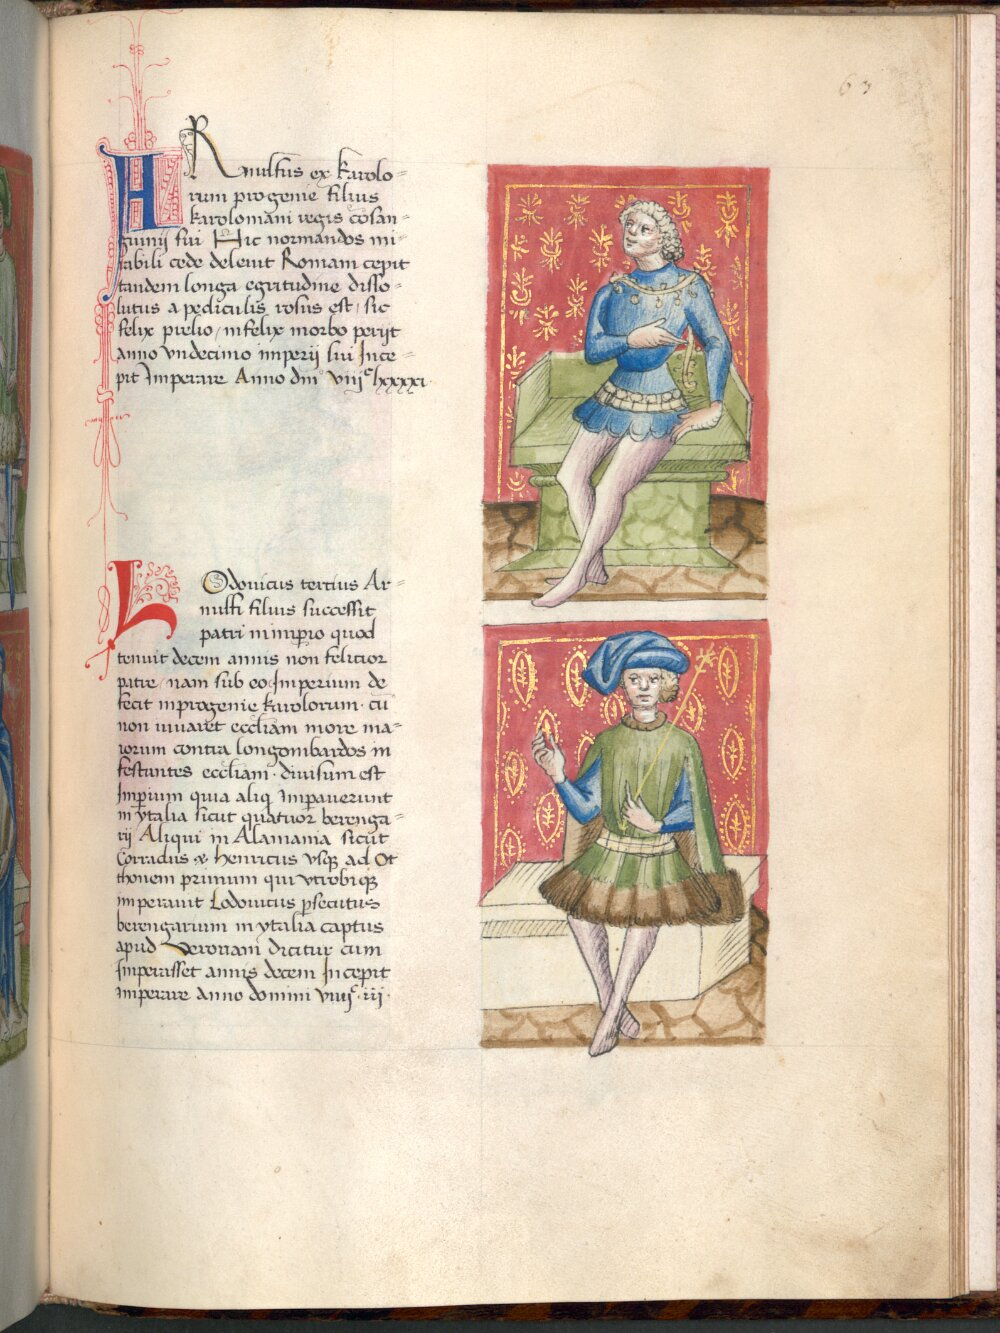 63
ARnulfus ex Karolo=
rum progenie filius
Karolomani regis cōsan=
guinij sui Hic normandos mi=
rabili cede deleuit Romam cepit
tandem longa egritudine disso=
lutus a pediculis rosus est / sic
felix prelio / infelix morbo perijt
anno vndecimo imperij sui Ince=
pit Imperare Anno dn̄i viijc lxxxxi
LOdouicus tertius Ar=
nulfi filius successit
patri in imp̄io quod
tenuit decem annis non felicior
patre / nam sub eo Imperium de
fecit in progenie Karolorum · cū
non iuuaret eccl̄iam more ma=
iorum contra longombardos in
festantes eccl̄iam · diuisum est
Imp̄ium quia aliq̄ Imp̄auerunt
in ytalia sicut quatuor berenga=
rij Aliqui in Alamania sicut
Corradus & Henricus vsq̄ ad Ot
thonem primum qui vtrobiq̄
imperauit Lodouicus p̄secutus
berengarium in ytalia captus
apud Veronam dicitur cum
Imperasset annis decem Incepit
imperare anno domini viiijc · iij ·